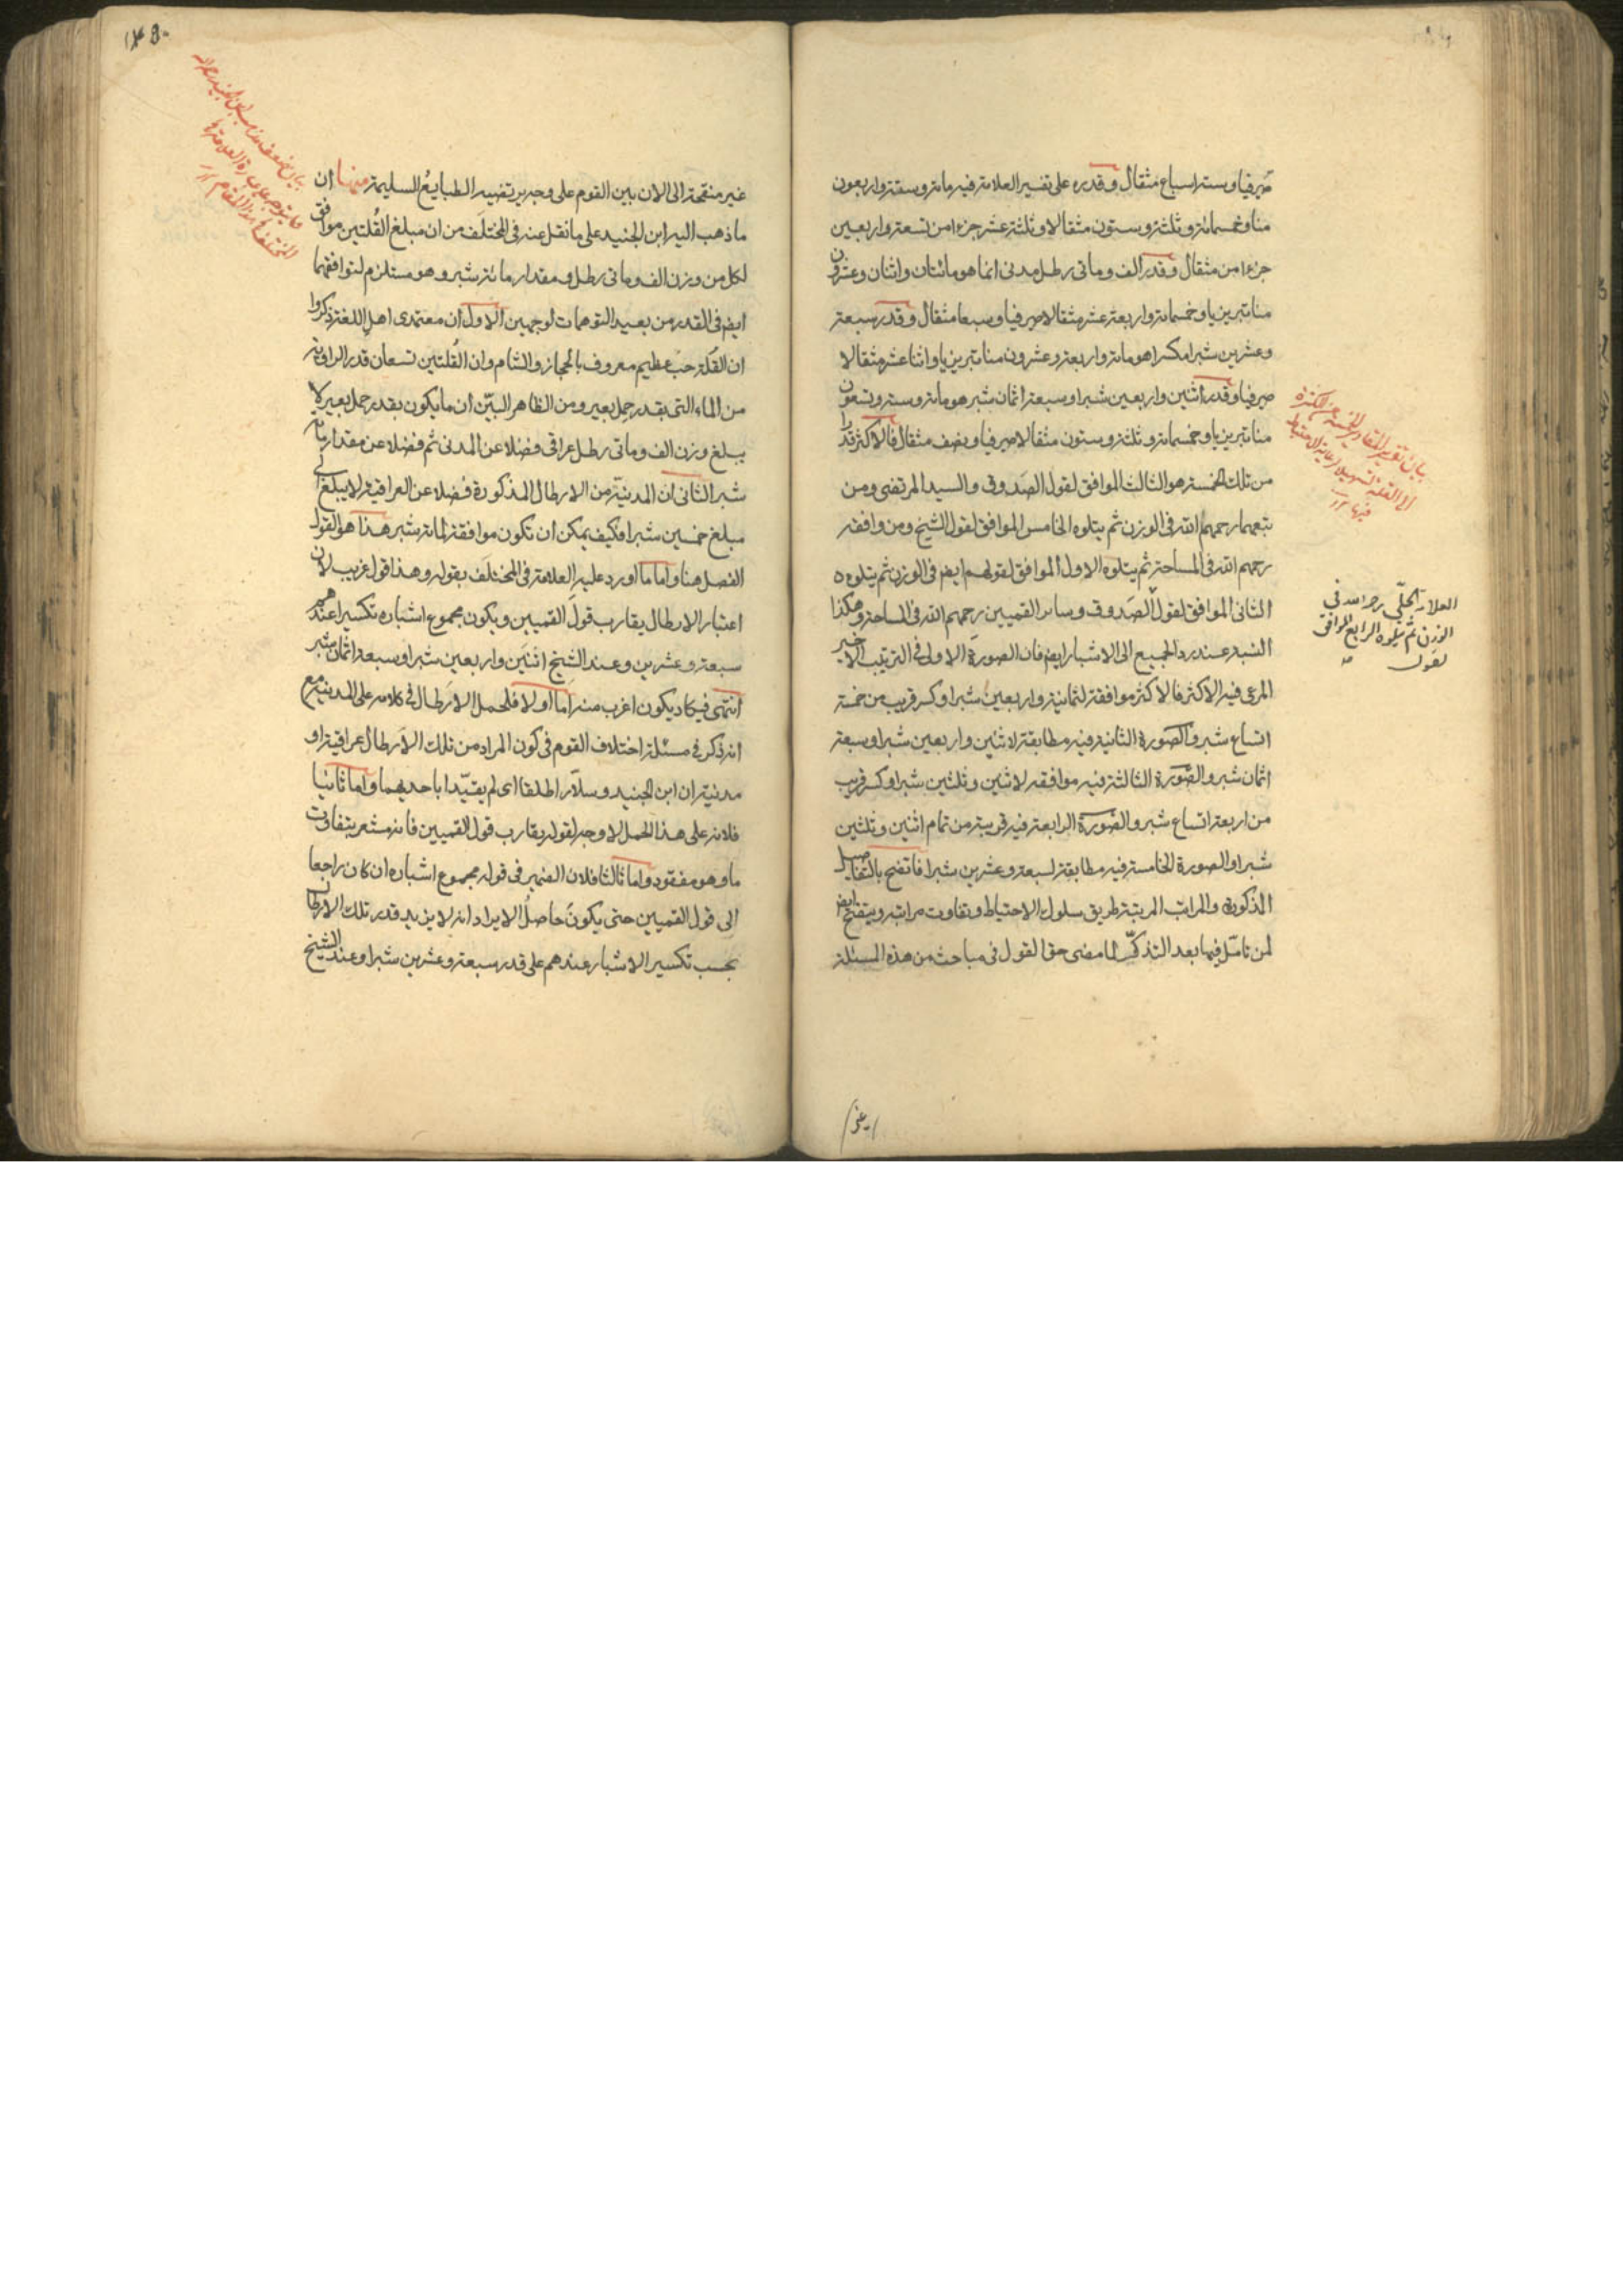 صيرفيا وستة اسباع مثقال وقدره على تفسير العلامة فيه مائة وستة واربعون
منا وخمسمائة وثلثة وستون مثقالا وثلثة عشر جزءا من تسعة واربعين
جزءا من مثقال وقدر الف ومأتى رطل مدنى انما هو مائتان واثنان وعشرون
منا تبريزيا وخمسمائة واربعة عشر مثقالا صيرفيا وسبعا مثقال وقدر سبعة
وعشرين شبرا مكسرا هو مائة واربعة وعشرون منا تبريزيا واثنا عشر مثقالا
صيرفيا وقدر اثنين واربعين شبرا وسبعة اثمان شبر هو مائة وستة وتسعون
منا تبريزيا وخمسمائة وثلثة وستون مثقالا صيرفيا ونصف مثقال فالاكثر قدرا
من تلك الخمسة هو الثالث الموافق لقول الصدوق والسيد المرتضى ومن
تبعهما رحمهم الله فى الوزن ثم يتلوه الخامس الموافق لقول الشيخ ومن وافقه
رحمهم الله فى المساحة ثم يتلوه الاول الموافق لقولهم ايضا فى الوزن ثم يتلوه
الثانى الموافق لقول الصدوق وسائر القميين رحمهم الله فى المساحة وهكذا
النسبة عند رد الجميع الى الاشبار ايضا فان الصورة الاولى فى الترتيب الاخير
المرعى فيه الاكثر فالاكثر موافقة لثمانية واربعين شبرا وكسر قريب من خمسة
اتساع شبر والصورة الثانية فيه مطابقة لاثنين واربعين شبرا وسبعة
اثمان شبر والصورة الثالثة فيه موافقة لاثنين وثلثين شبرا وكسر قريب
من اربعة اتساع شبر والصورة الرابعة فيه قريبة من تمام اثنين وثلثين
شبرا والصورة الخامسة فيه مطابقة لسبعة وعشرين شبرا فاتضح بالتفاصيل
المذكورة والمراتب المرتبة طريق سلوك الاحتياط وتفاوت مراتبه ويتضح ايضا
لمن تامل فيما بعد التذكر لما مضى حق القول فى مباحث من هذه المسئلة
العلامة الحلّي رحمه الله في
الوزن ثم يتلوه الرابع الموافق
لقول
غير منقحة الى الان بين القوم على وجه يرتضيه الطبايع السليمة منها ان
ما ذهب اليه ابن الجنيد على ما نقل عنه فى المختلف من ان مبلغ القلتين موافق
لكل من وزن الف ومأتى رطل ومقدار مائة شبر وهو مستلزم لتوافقهما
ايضا فى القدر من بعيد التوهمات لوجهين الاول ان معتمدى اهل اللغة ذكروا
ان القلة حب عظيم معروف بالحجاز والشام وان القلتين تسعان قدر الراوية
من الماء التى بقدر حمل بعير ومن الظاهر البيّن ان ما يكون بقدر حمل بعير لا
يبلغ وزن الف ومأتى رطل عراقى فضلا عن المدنى ثم فضلا عن مقدار مائة
شبر الثانى ان المدنية من الارطال المذكورة فضلا عن العراقية لا يبلغ الى
مبلغ خمسين شبرا فكيف يمكن ان تكون موافقة لمائة شبر هذا هو القول
الفصل هنا واما ما اورد عليه العلامة فى المختلف بقوله وهذا قول غريب لان
اعتبار الارطال يقارب قول القميين ويكون مجموع اشباره تكسيرا عندهم
سبعة وعشرين وعند الشيخ اثنين واربعين شبرا وسبعة اثمان شبر
انتهى فيكاد يكون اغرب منه اما اولا فلحمل الارطال فى كلامه على المدنية مع
انه ذكر فى مسئلة اختلاف القوم فى كون المراد من تلك الارطال عراقية او
مدنية ان ابن الجنيد وسلار اطلقا اى لم يقيّدا باحديهما واما ثانيا
فلانه على هذا الحمل لا وجه لقوله يقارب قول القميين فانه مشعر بتفاوت
ما وهو مفقود واما ثالثا فلان الضمير فى قوله مجموع اشباره ان كان راجعا
الى قول القميين حتى يكون حاصل الايراد انه لا يزيد قدر تلك الارطال
بحسب تكسير الاشبار عندهم على قدر سبعة وعشرين شبرا وعند الشيخ